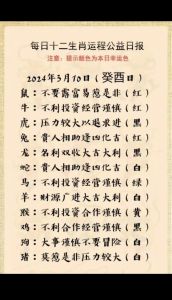 每日十二生肖运程公益日报
注意：提示颜色为本日幸运色
2024年3月10日（癸酉日）
鼠：不要露富易惹是非（红）
牛：不利投资经营谨慎（红）
虎：压力较大以退求进（黑）
兔：贵人相助逢凶化吉（白）
龙：名利双收大吉大利（黑）
蛇：贵人相助逢凶化吉（白）
马：不利投资经营谨慎（绿）
羊：财源广进大吉大利（白）
猴：不利投资合作谨慎（黄）
鸡：不利合作经营谨慎（黑）
狗：大事谨慎不要冒险（白）
猪：莫惹是非压力较大（白）